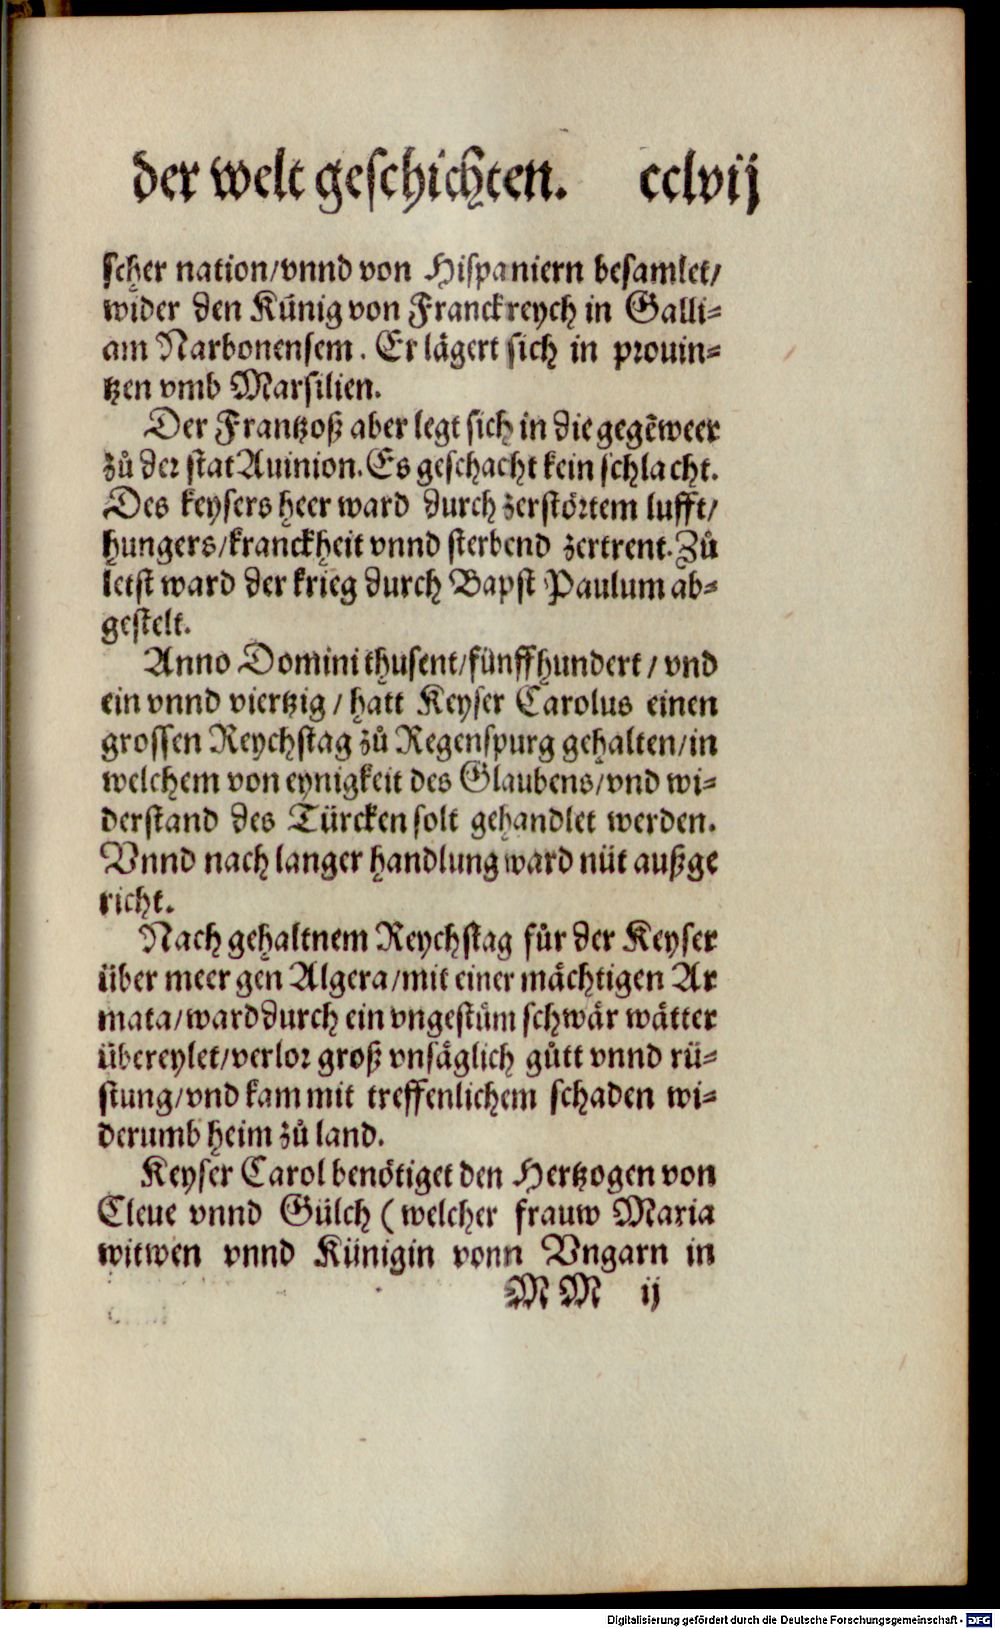 der welt geschichten. cclvij
scher nation/vnnd von Hispaniern besamlet/
wider den Künig von Franckreych in Galli=
am Narbonensem. Er lägert sich in prouin=
tzen vmb Marsilien.
Der Frantzoß aber legt sich in die gegēweer
zů der stat Auinion. Es geschacht kein schlacht.
Des keysers heer ward durch zerstörtem lufft/
hungers/kranckheit vnnd sterbend zertrent. Zů
letst ward der krieg durch Bapst Paulum ab=
gestelt.
Anno Domini thusent/fünffhundert/vnd
ein vnnd viertzig/hatt Keyser Carolus einen
grossen Reychstag zů Regenspurg gehalten/in
welchem von eynigkeit des Glaubens/vnd wi=
derstand des Türcken solt gehandlet werden.
Vnnd nach langer handlung ward nüt außge
richt.
Nach gehaltnem Reychstag für der Keyser
über meer gen Algera/mit einer mächtigen Ar
mata/ward durch ein vngestüm schwär wätter
übereylet/verlor groß vnsäglich gůtt vnnd rü=
stung/vnd kam mit treffenlichem schaden wi=
derumb heim zů land.
Keyser Carol benötiget den Hertzogen von
Cleue vnnd Gülch (welcher frauw Maria
witwen vnnd Künigin vonn Vngarn in
MM ij
Digitalisierung gefördert durch die Deutsche Forschungsgemeinschaft - DFG